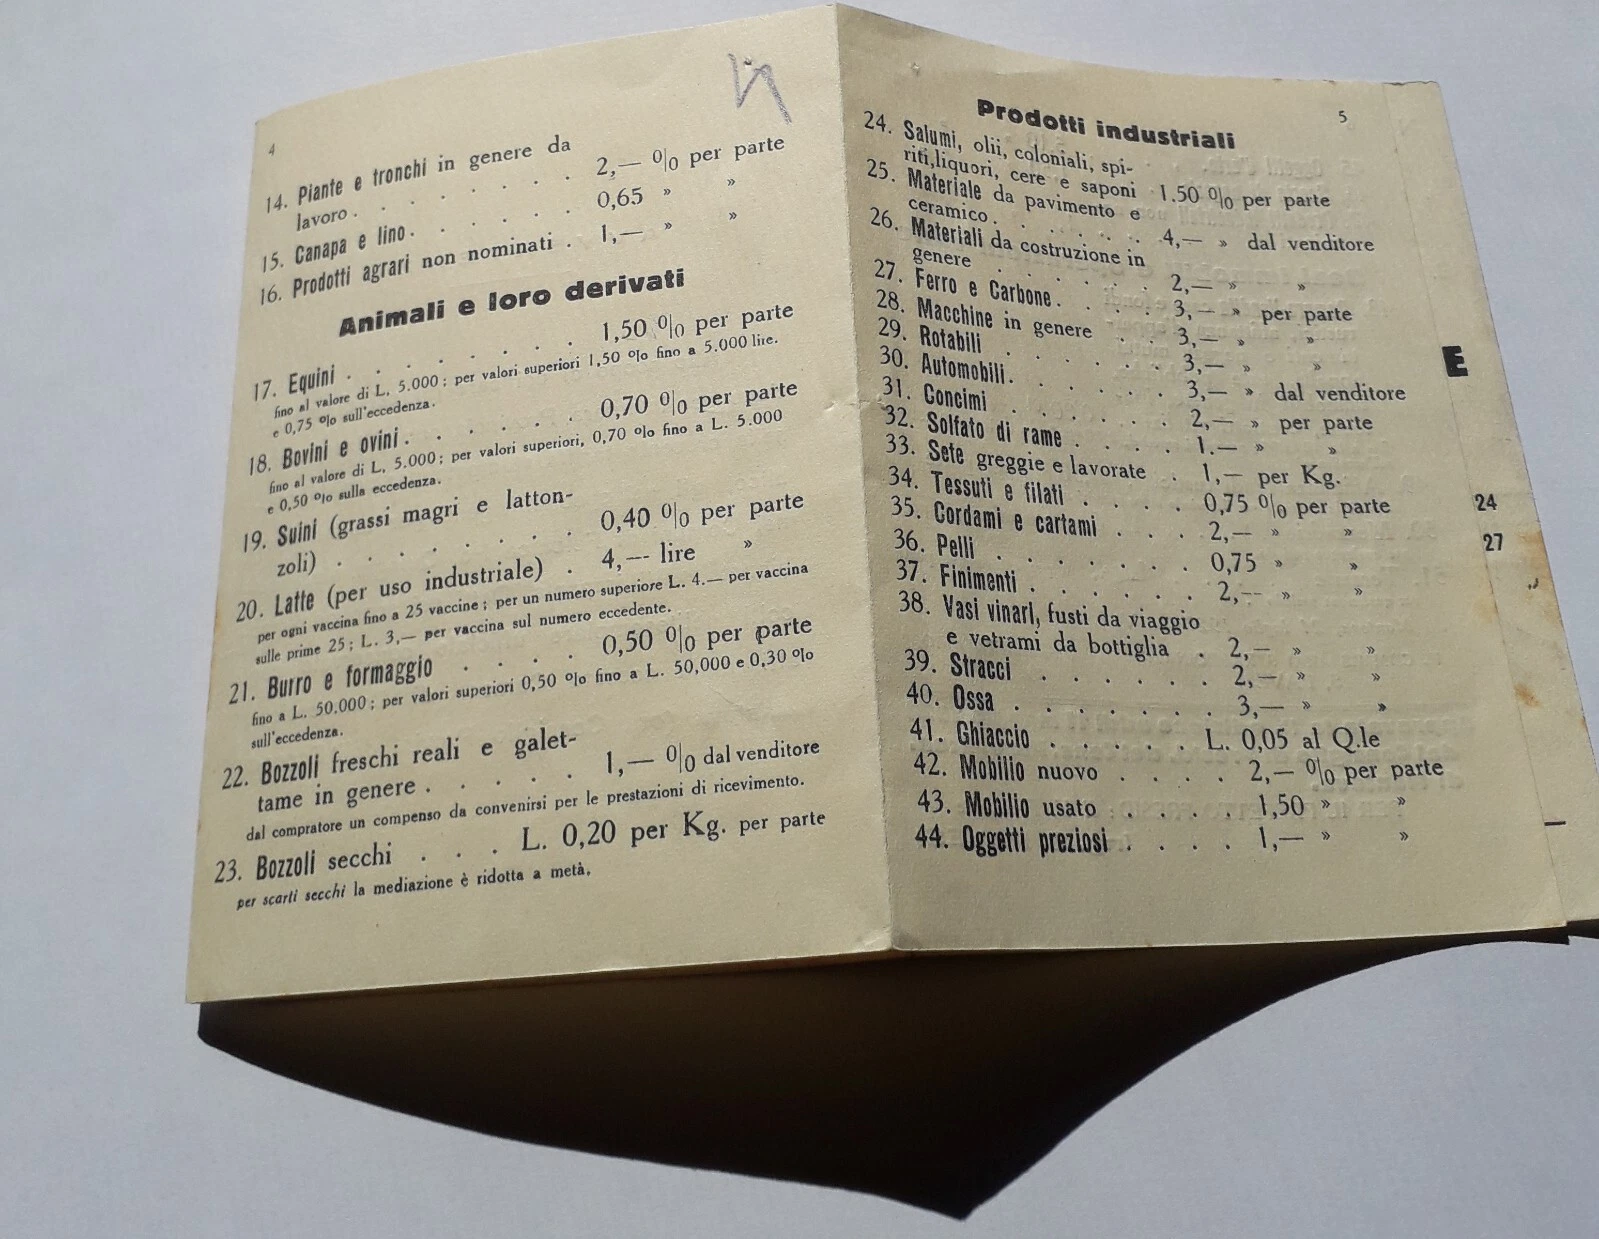 4
14. Piante e tronchi in genere da
lavoro . . . . . . . 2,— % per parte
15. Canapa e lino . . . . . . 0,65 » »
16. Prodotti agrari non nominati . 1,— » »
Animali e loro derivati
17. Equini . . . . . . . 1,50 % per parte
fino al valore di L. 5.000 ; per valori superiori 1,50 % fino a 5.000 lire.
e 0,75 % sull'eccedenza.
18. Bovini e ovini . . . . . . 0,70 % per parte
fino al valore di L. 5.000 ; per valori superiori, 0,70 % fino a L. 5.000
e 0,50 % sulla eccedenza.
19. Suini (grassi magri e latton-
zoli) . . . . . . . 0,40 % per parte
20. Latte (per uso industriale) . 4,— lire »
per ogni vaccina fino a 25 vaccine ; per un numero superiore L. 4.— per vaccina
sulle prime 25 ; L. 3,— per vaccina sul numero eccedente.
21. Burro e formaggio . . . . 0,50 % per parte
fino a L. 50.000 ; per valori superiori 0,50 % fino a L. 50,000 e 0,30 %
sull'eccedenza.
22. Bozzoli freschi reali e galet-
tame in genere . . . . . 1,— % dal venditore
dal compratore un compenso da convenirsi per le prestazioni di ricevimento.
23. Bozzoli secchi . . . L. 0,20 per Kg. per parte
per scarti secchi la mediazione è ridotta a metà.
5
Prodotti industriali
24. Salumi, olii, coloniali, spi-
riti, liquori, cere e saponi 1.50 % per parte
25. Materiale da pavimento e
ceramico . . . . . . 4,— » dal venditore
26. Materiali da costruzione in
genere . . . . . . 2,— » »
27. Ferro e Carbone . . . . . 3,— » per parte
28. Macchine in genere . . 3,— » »
29. Rotabili . . . . . . . 3,— » »
30. Automobili . . . . . . 3,— » dal venditore
31. Concimi . . . . . . . 2,— » per parte
32. Solfato di rame . . . . 1.— » »
33. Sete greggie e lavorate . 1,— per Kg.
34. Tessuti e filati . . . . 0,75 % per parte
35. Cordami e cartami . . . . 2,— » »
36. Pelli . . . . . . . 0,75 » »
37. Finimenti . . . . . . 2,— » »
38. Vasi vinari, fusti da viaggio
e vetrami da bottiglia . 2,— » »
39. Stracci . . . . . . 2,— » »
40. Ossa . . . . . . . 3,— » »
41. Ghiaccio . . . . . L. 0,05 al Q.le
42. Mobilio nuovo . . . . 2,— % per parte
43. Mobilio usato . . . . 1,50 » »
44. Oggetti preziosi . . . . 1,— » »
E
24
27